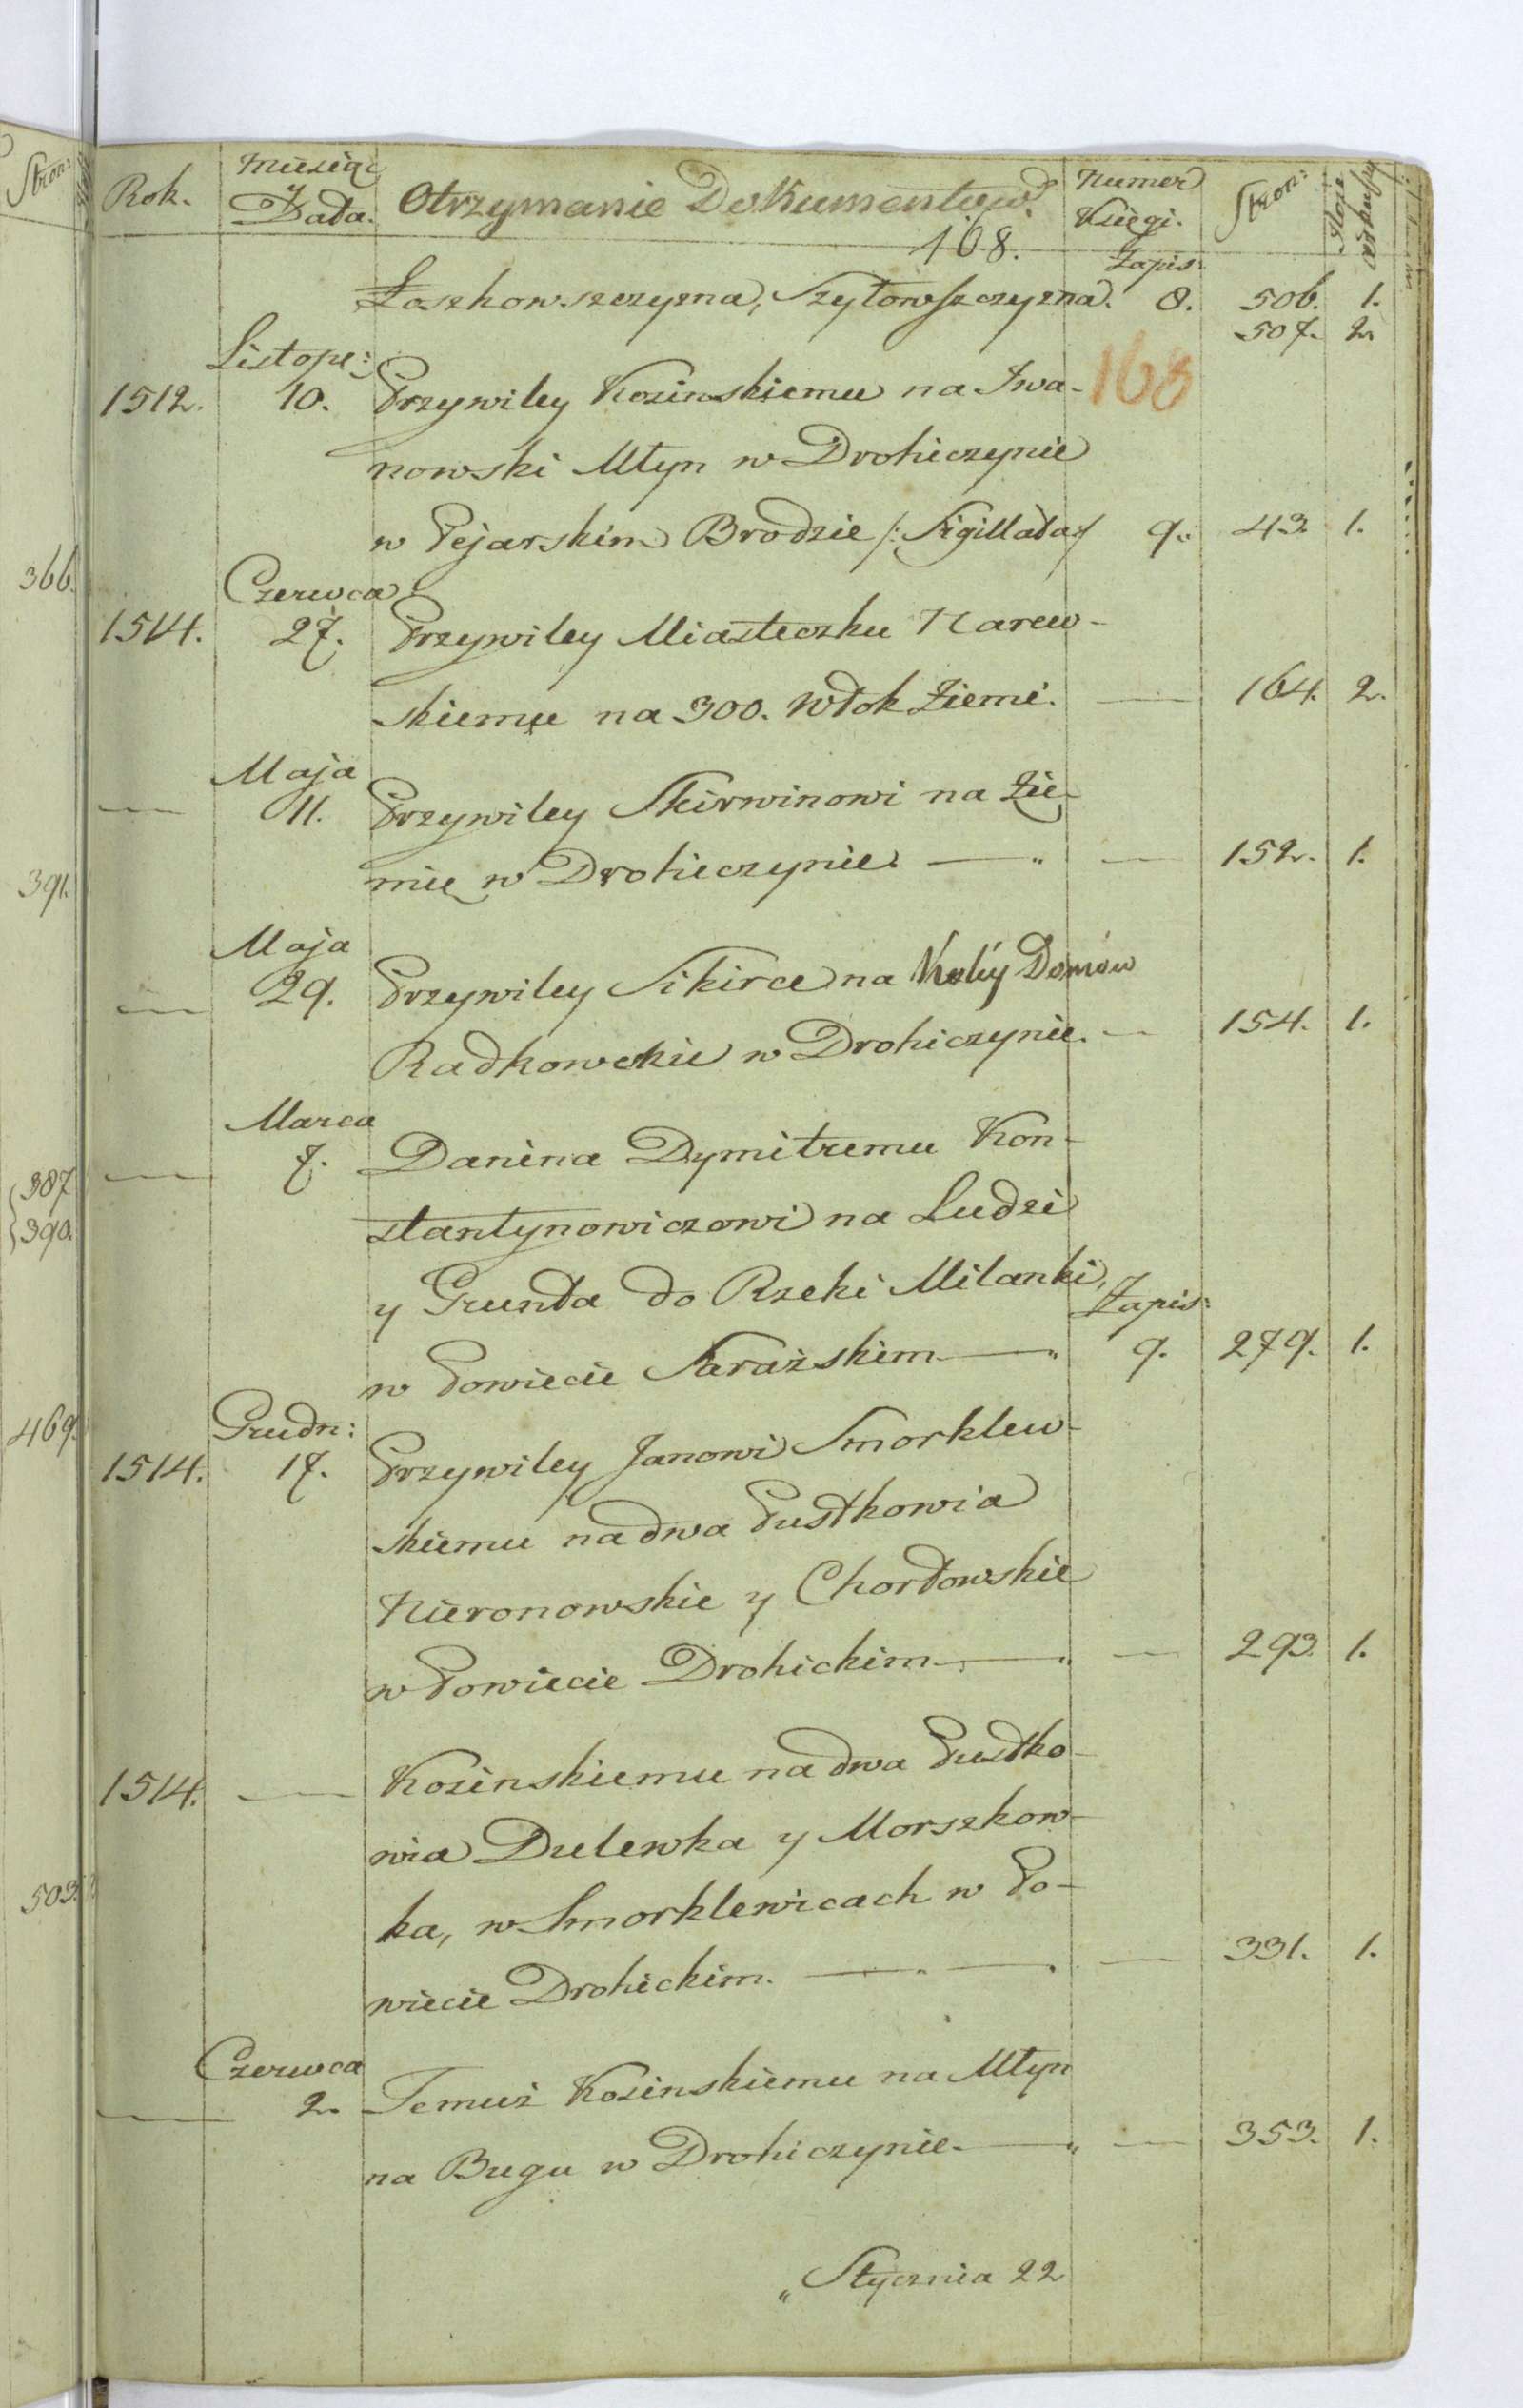 Stron:
Rok.
Miesiąc
y
Data.
Otrzymanie Dokumentow.
Numer
Księgi.
Stron:
168.
Zapis:
Łoszkowszczyzna, Szyłowszczyzna. 8. 506. 1.
507. 2.
Listopa:
168
1512. 10. Przywiley Kosinskiemu na Iwa-
nowski Młyn w Drohiczynie
w Pejarskim Brodzie /: Sigillata :/ 9. 43. 1.
366.
Czerwca
1514. 27. Przywiley Miasteczku Narew-
skiemu na 300. Włok Ziemi. — 164. 2.
Maja
— 11. Przywiley Skirwinowi na Zie-
mię w Drohiczynie. — „ — 152. 1.
391.
Maja
— 29. Przywiley Sikirce na Domów
Radkowskie w Drohiczynie. — 154. 1.
Marca
— 7. Danina Dymitremu Kon-
387
390.
stantynowiczowi na Ludzi
y Grunta do Rzeki Milanki,
Zapis:
w Powiecie Sarażskim — „ 9. 279. 1.
469.
Grudn:
1514. 17. Przywiley Janowi Smorklew-
skiemu na dwa Pustkowia
Nieronowskie y Chordowskie
w Powiecie Drohickim — „ — 293. 1.
1514. — Kosinskiemu na dwa Pustko-
wia Dulewka y Morszkow-
503.
ka, w Smorklewicach w Po-
wiecie Drohickim. — „ — . — 331. 1.
Czerwca
— 2. Temuż Kosinskiemu na Młyn
na Bugu w Drohiczynie. — „ — 353. 1.
„ Stycznia 22